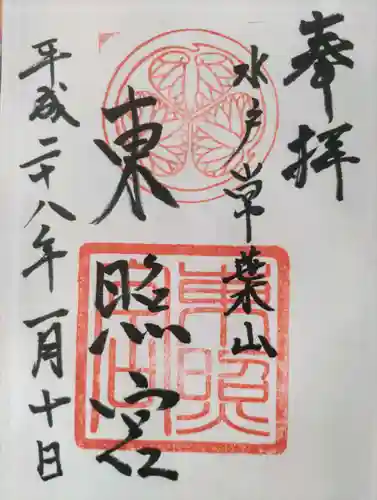 奉拝
水戸常葉山
東照宮
平成二十八年一月十日
東照宮印